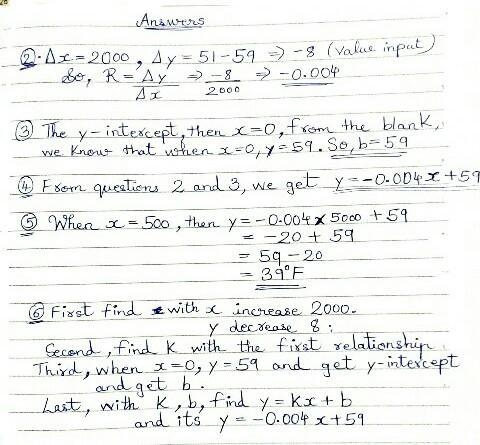 Answers
② · Δx = 2000, Δy = 51 - 59 => -8 (value input)
So, R = Δy/Δx => -8/2000 => -0.004
③ The y-intercept, then x=0, from the blank,
we know that when x=0, y=59. So, b=59
④ From questions 2 and 3, we get y=-0.004x+59
⑤ When x=500, then y=-0.004×5000+59
= -20+59
= 59-20
= 39°F
⑥ First find with x increase 2000.
y decrease 8:
Second, find K with the first relationship.
Third, when x=0, y=59 and get y-intercept
and get b.
Last, with K, b, find y=Kx+b
and its y=-0.004x+59